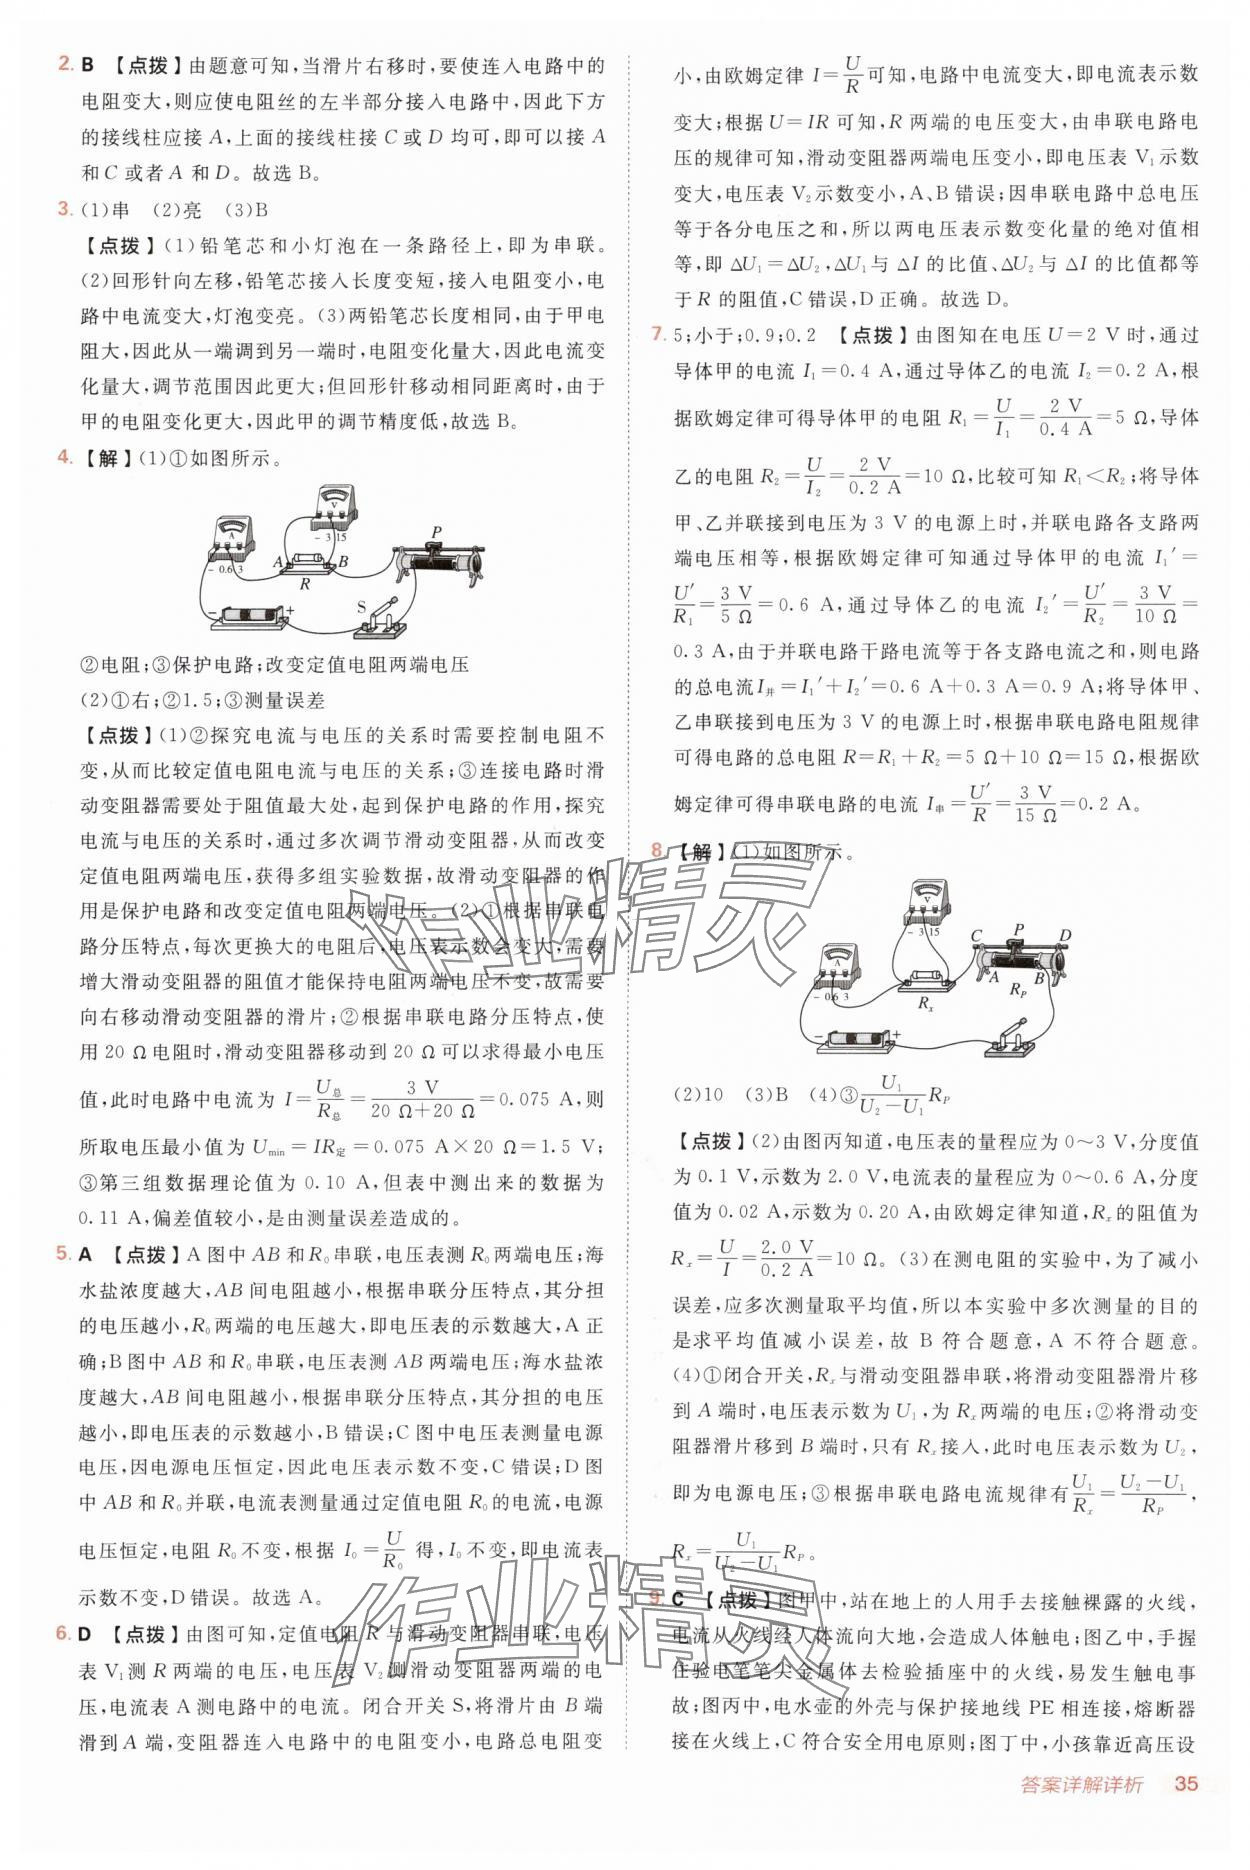 2. B 【点拨】由题意可知,当滑片右移时,要使连入电路中的
电阻变大,则应使电阻丝的左半部分接入电路中,因此下方
的接线柱应接 A,上面的接线柱接 C 或 D 均可,即可以接 A
和 C 或者 A 和 D。故选 B。
3. (1)串 (2)亮 (3)B
【点拨】(1)铅笔芯和小灯泡在一条路径上,即为串联。
(2)回形针向左移,铅笔芯接入长度变短,接入电阻变小,电
路中电流变大,灯泡变亮。(3)两铅笔芯长度相同,由于甲电
阻大,因此从一端调到另一端时,电阻变化量大,因此电流变
化量大,调节范围因此更大;但回形针移动相同距离时,由于
甲的电阻变化更大,因此甲的调节精度低,故选 B。
4. 【解】(1)①如图所示。
V
- 3 15
A
- 0.6 3
A B
R
P
- +
S
②电阻;③保护电路;改变定值电阻两端电压
(2)①右;②1.5;③测量误差
【点拨】(1)②探究电流与电压的关系时需要控制电阻不
变,从而比较定值电阻电流与电压的关系;③连接电路时滑
动变阻器需要处于阻值最大处,起到保护电路的作用,探究
电流与电压的关系时,通过多次调节滑动变阻器,从而改变
定值电阻两端电压,获得多组实验数据,故滑动变阻器的作
用是保护电路和改变定值电阻两端电压。(2)①根据串联电
路分压特点,每次更换大的电阻后,电压表示数会变大,需要
增大滑动变阻器的阻值才能保持电阻两端电压不变,故需要
向右移动滑动变阻器的滑片;②根据串联电路分压特点,使
用 20 Ω 电阻时,滑动变阻器移动到 20 Ω 可以求得最小电压
值,此时电路中电流为 I=U总/R总=3 V/(20 Ω+20 Ω)=0.075 A,则
所取电压最小值为 Umin=IR定=0.075 A×20 Ω=1.5 V;
③第三组数据理论值为 0.10 A,但表中测出来的数据为
0.11 A,偏差值较小,是由测量误差造成的。
5. A 【点拨】A 图中 AB 和 R₀串联,电压表测 R₀两端电压;海
水盐浓度越大,AB 间电阻越小,根据串联分压特点,其分担
的电压越小,R₀两端的电压越大,即电压表的示数越大,A 正
确;B 图中 AB 和 R₀串联,电压表测 AB 两端电压;海水盐浓
度越大,AB 间电阻越小,根据串联分压特点,其分担的电压
越小,即电压表的示数越小,B 错误;C 图中电压表测量电源
电压,因电源电压恒定,因此电压表示数不变,C 错误;D 图
中 AB 和 R₀并联,电流表测量通过定值电阻 R₀的电流,电源
电压恒定,电阻 R₀不变,根据 I₀=U/R₀ 得,I₀不变,即电流表
示数不变,D 错误。故选 A。
6. D 【点拨】由图可知,定值电阻 R 与滑动变阻器串联,电压
表 V₁测 R 两端的电压,电压表 V₂测滑动变阻器两端的电
压,电流表 A 测电路中的电流。闭合开关 S,将滑片由 B 端
滑到 A 端,变阻器连入电路中的电阻变小,电路总电阻变
小,由欧姆定律 I=U/R可知,电路中电流变大,即电流表示数
变大;根据 U=IR 可知,R 两端的电压变大,由串联电路电
压的规律可知,滑动变阻器两端电压变小,即电压表 V₁示数
变大,电压表 V₂示数变小,A、B 错误;因串联电路中总电压
等于各分电压之和,所以两电压表示数变化量的绝对值相
等,即 ΔU₁=ΔU₂,ΔU₁与 ΔI 的比值、ΔU₂与 ΔI 的比值都等
于 R 的阻值,C 错误,D 正确。故选 D。
7. 5;小于;0.9;0.2 【点拨】由图知在电压 U=2 V 时,通过
导体甲的电流 I₁=0.4 A,通过导体乙的电流 I₂=0.2 A,根
据欧姆定律可得导体甲的电阻 R₁=U/I₁=2 V/0.4 A=5 Ω,导体
乙的电阻 R₂=U/I₂=2 V/0.2 A=10 Ω,比较可知 R₁<R₂;将导体
甲、乙并联接到电压为 3 V 的电源上时,并联电路各支路两
端电压相等,根据欧姆定律可知通过导体甲的电流 I₁′=
U′/R₁=3 V/5 Ω=0.6 A,通过导体乙的电流 I₂′=U′/R₂=3 V/10 Ω=
0.3 A,由于并联电路干路电流等于各支路电流之和,则电路
的总电流I并=I₁′+I₂′=0.6 A+0.3 A=0.9 A;将导体甲、
乙串联接到电压为 3 V 的电源上时,根据串联电路电阻规律
可得电路的总电阻 R=R₁+R₂=5 Ω+10 Ω=15 Ω,根据欧
姆定律可得串联电路的电流 I串=U′/R=3 V/15 Ω=0.2 A。
8. 【解】(1)如图所示。
V
- 3 15
A
- 0.6 3
Rx
C P D
A B
RP
- +
(2)10 (3)B (4)③U₁/(U₂-U₁)RP
【点拨】(2)由图丙知道,电压表的量程应为 0~3 V,分度值
为 0.1 V,示数为 2.0 V,电流表的量程应为 0~0.6 A,分度
值为 0.02 A,示数为 0.20 A,由欧姆定律知道,Rx的阻值为
Rx=U/I=2.0 V/0.2 A=10 Ω。(3)在测电阻的实验中,为了减小
误差,应多次测量取平均值,所以本实验中多次测量的目的
是求平均值减小误差,故 B 符合题意,A 不符合题意。
(4)①闭合开关,Rx与滑动变阻器串联,将滑动变阻器滑片移
到 A 端时,电压表示数为 U₁,为 Rx两端的电压;②将滑动变
阻器滑片移到 B 端时,只有 Rx接入,此时电压表示数为 U₂,
即为电源电压;③根据串联电路电流规律有U₁/Rx=(U₂-U₁)/RP,
Rx=U₁/(U₂-U₁)RP。
9. C 【点拨】图甲中,站在地上的人用手去接触裸露的火线,
电流从火线经人体流向大地,会造成人体触电;图乙中,手握
住验电笔笔尖金属体去检验插座中的火线,易发生触电事
故;图丙中,电水壶的外壳与保护接地线 PE 相连接,熔断器
接在火线上,C 符合安全用电原则;图丁中,小孩靠近高压设
作业精灵
作业精灵
答案详解详析 35